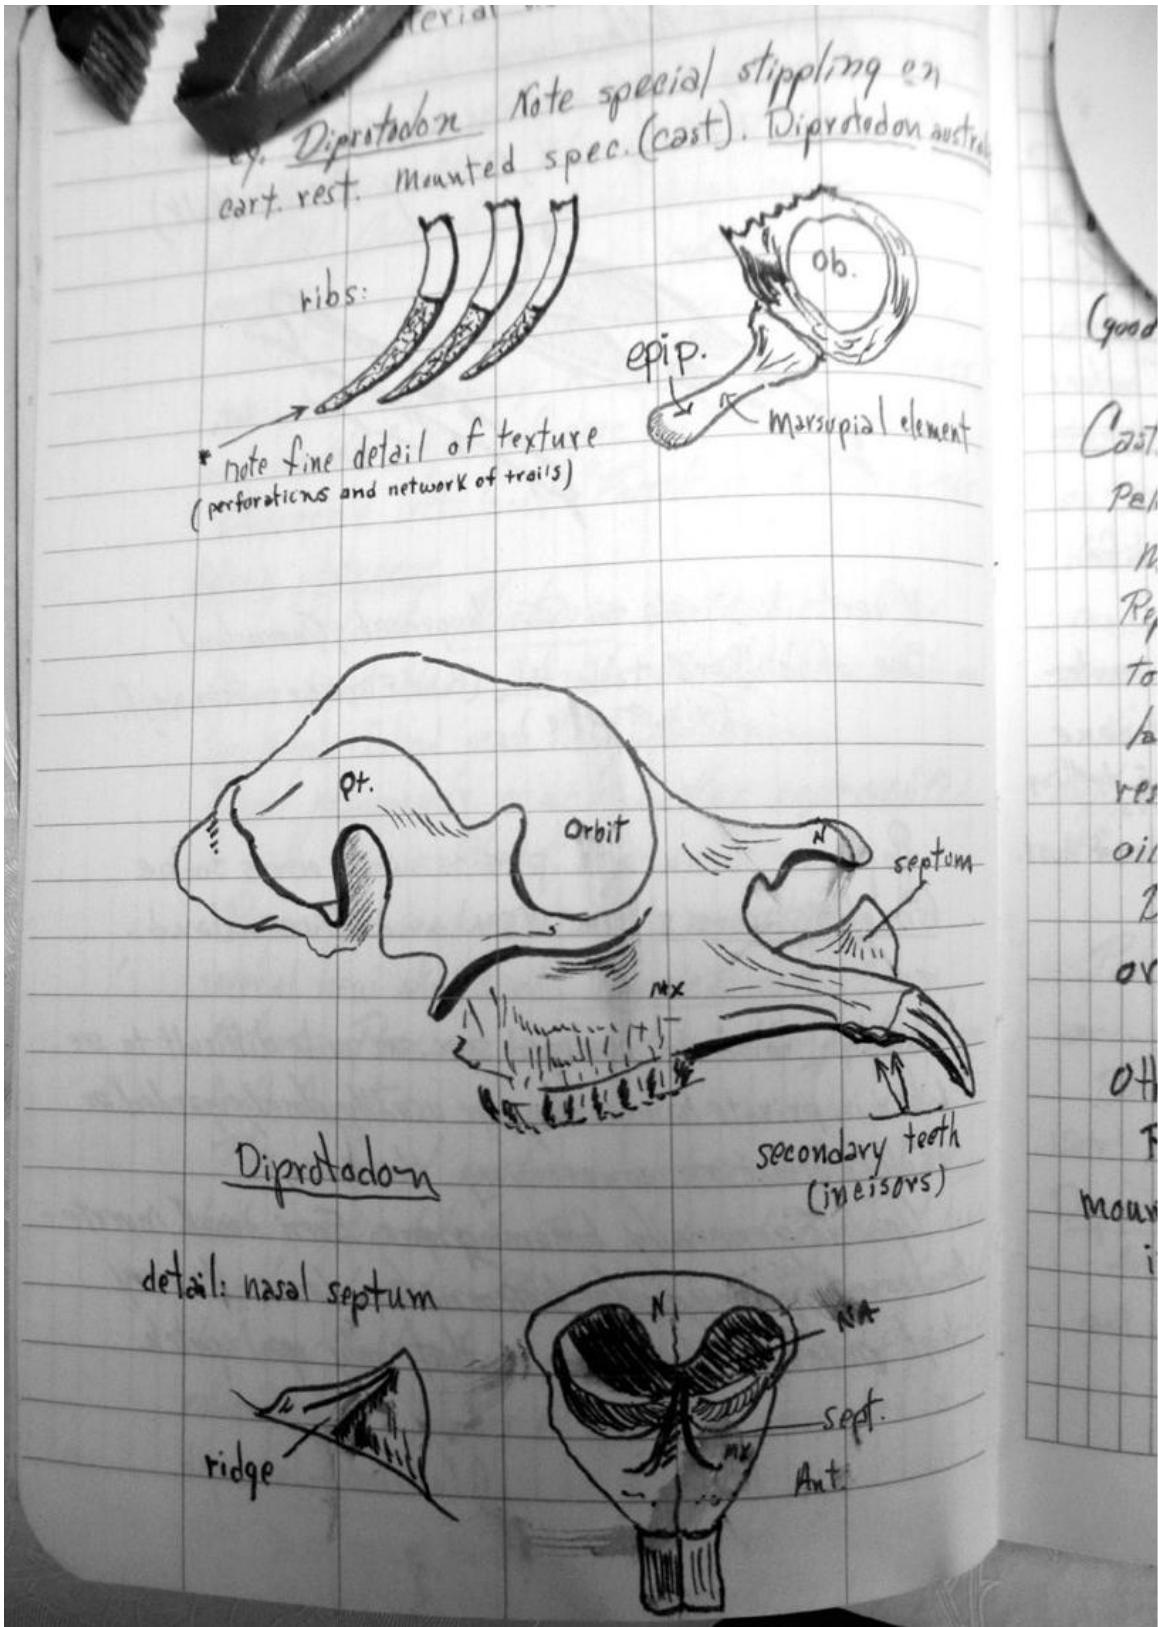 eg. Diprotodon Note special stippling on
cart. rest. Mounted spec. (cast). Diprotodon
ribs:
Ob.
epip.
marsupial element
* note fine detail of texture
(perforations and network of trails)
Pt.
Orbit
N
septum
mx
secondary teeth
(incisors)
Diprotodon
detail: nasal septum
ridge
N
NA
sept.
mx
Ant.
(good
Cast
to
oil
or